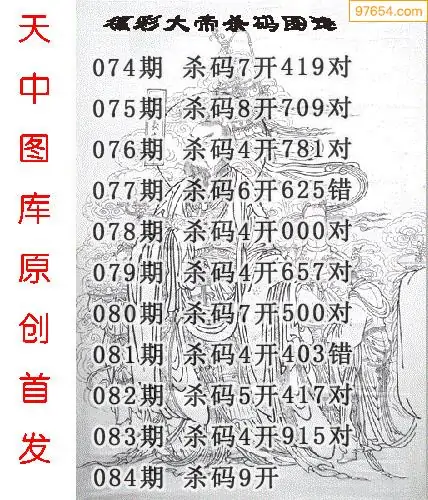 97654.com
福彩大帝杀码图逸
天中图库原创首发
074期 杀码7开419对
075期 杀码8开709对
076期 杀码4开781对
077期 杀码6开625错
078期 杀码4开000对
079期 杀码4开657对
080期 杀码7开500对
081期 杀码4开403错
082期 杀码5开417对
083期 杀码4开915对
084期 杀码9开